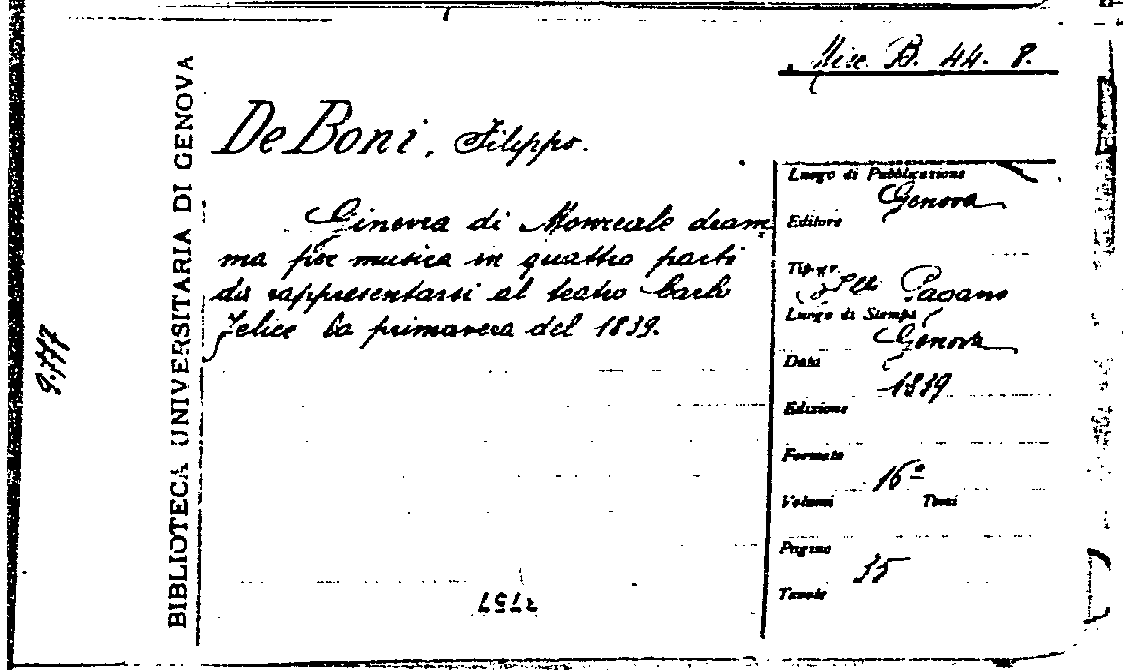 Misc. B. 44. 8.
De Boni, Filippo.
Ginevra di Monreale dram-
ma per musica in quattro parti
da rappresentarsi al teatro Carlo
Felice la primavera del 1839.
BIBLIOTECA UNIVERSITARIA DI GENOVA
Luogo di Pubblicazione
Genova
Editore
Tipogr.
Pagano
Luogo di Stampa
Genova
Data
1839
Edizione
Formato
16º
Volumi Tomi
Pagine
35
Tavole